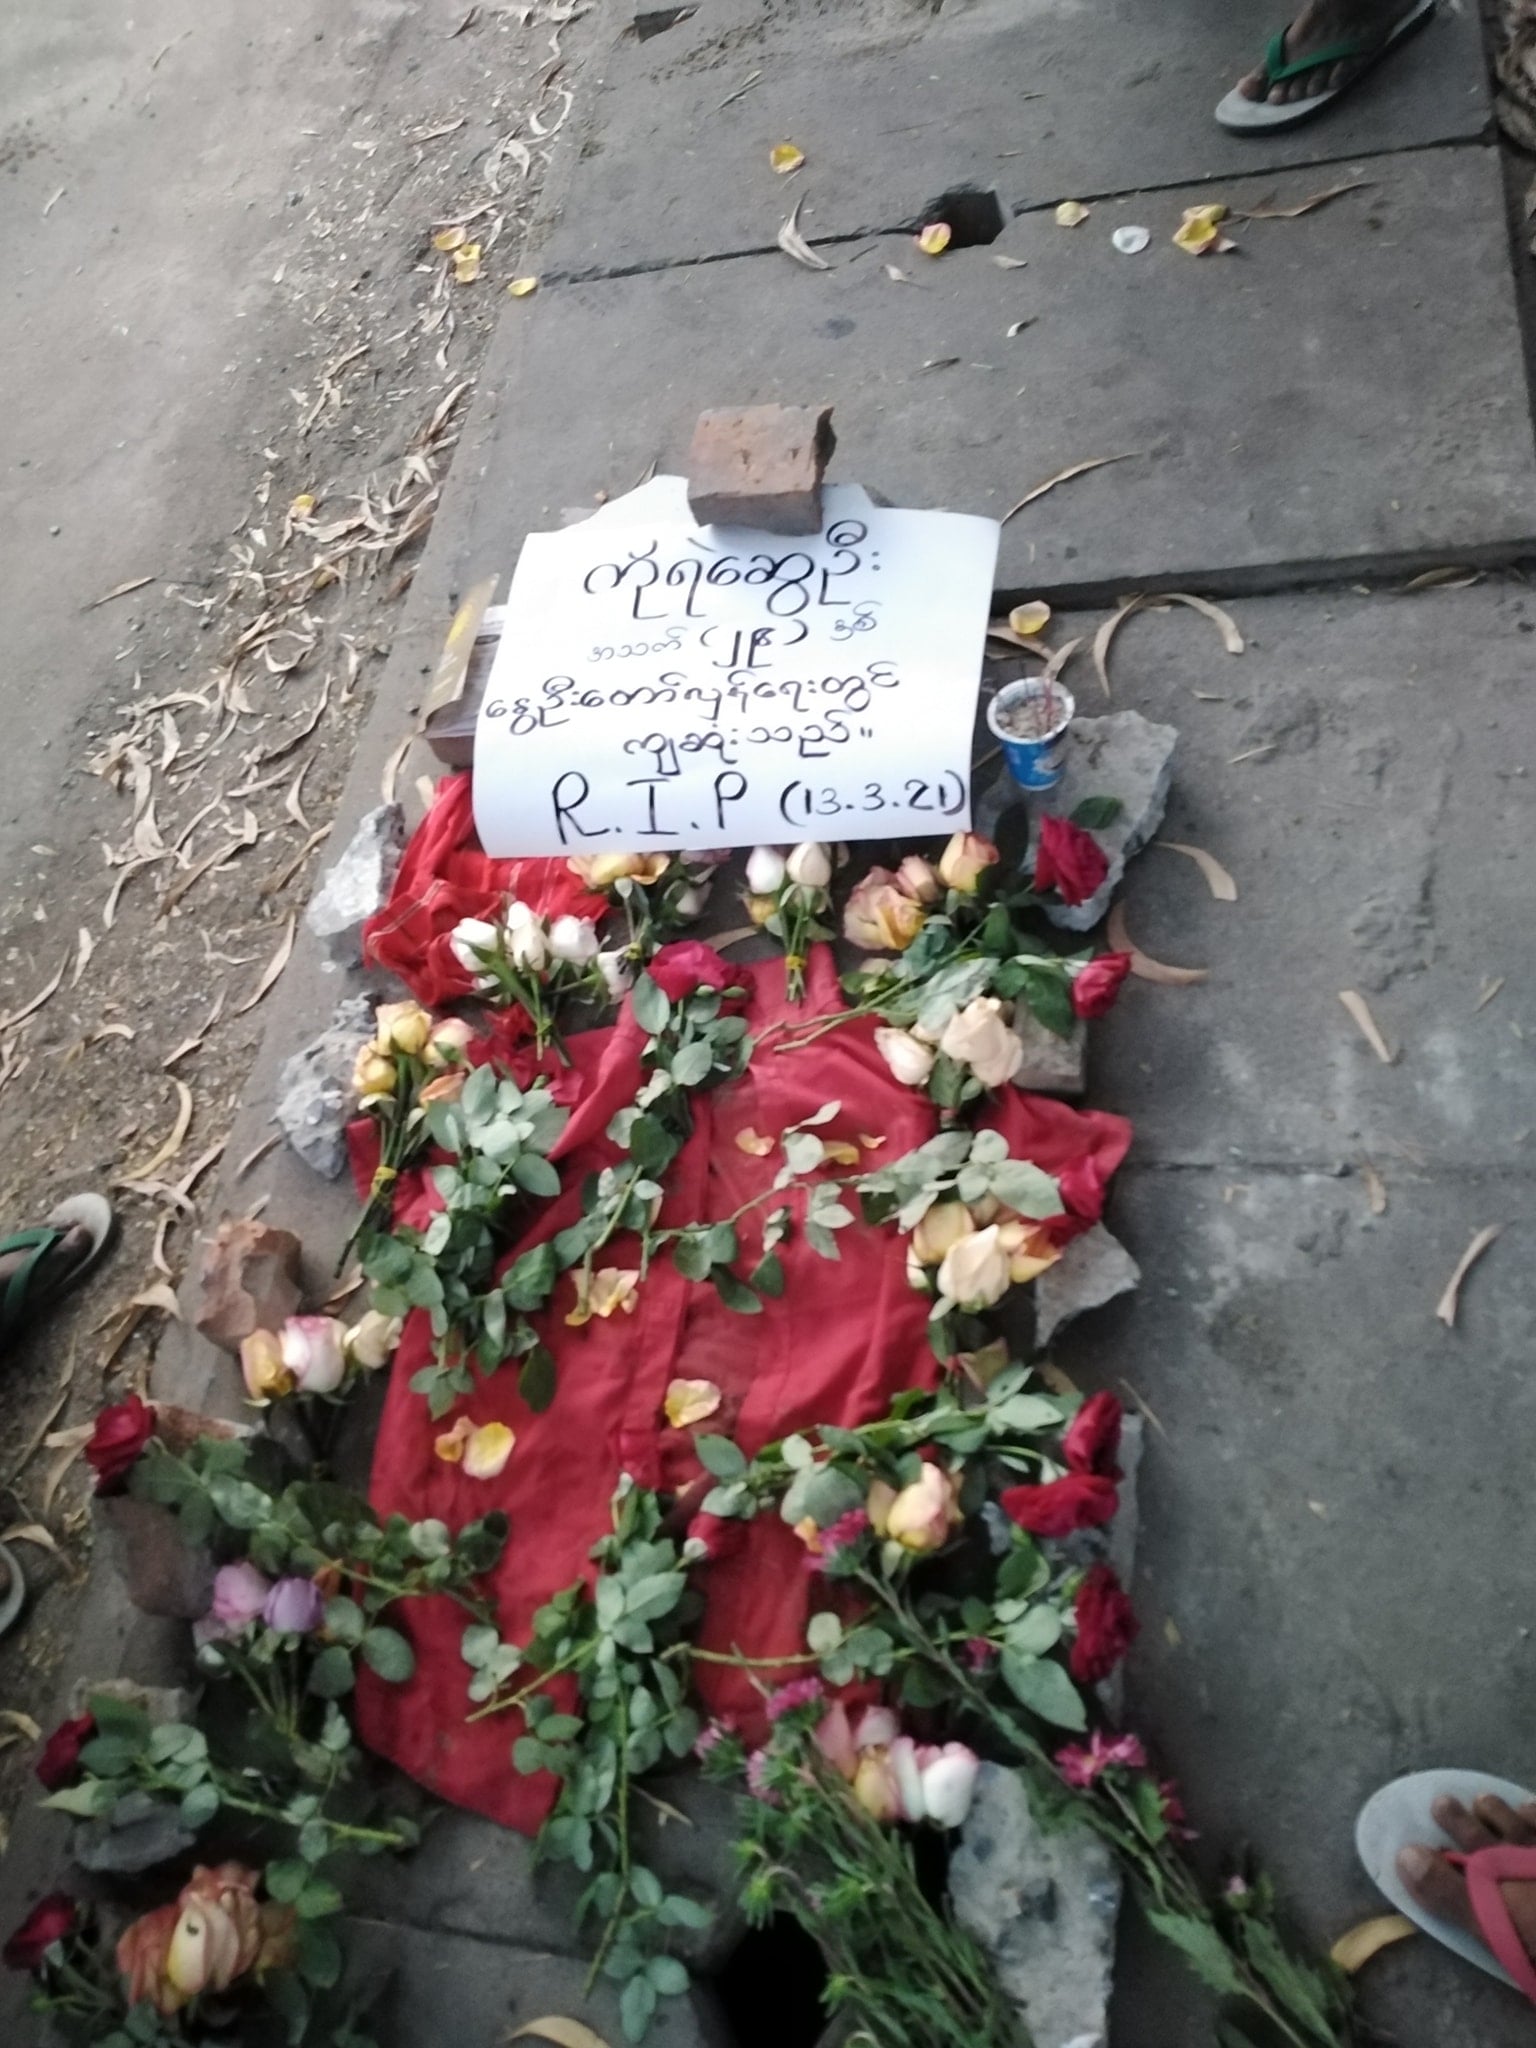 ကိုရဲဆွေဦး
အသက် (၂၉) နှစ်
နွေဦးတော်လှန်ရေးတွင်
ကျဆုံးသည်။
R.I.P (13.3.21)